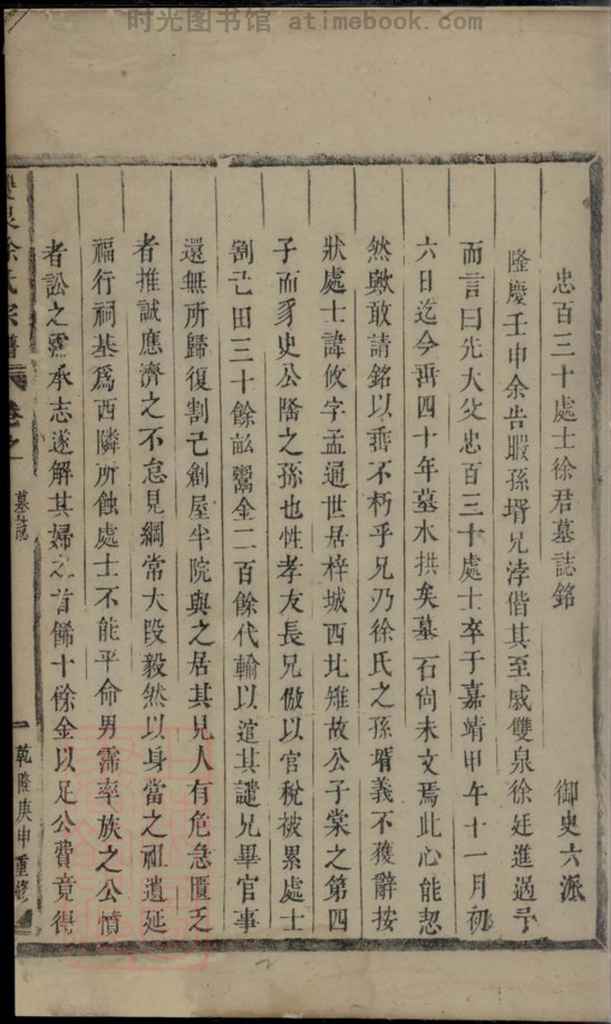 时光图书馆 atimebook.com
忠百三十處士徐君墓誌銘 御史六派
隆慶壬申余告暇孫壻兄浡偕其至戚雙泉徐廷進過予
而言曰先大父忠百三十處士卒于嘉靖甲午十一月初
六日迄今再四十年墓木拱矣墓石尚未文焉此心能恝
然歟敢請銘以垂不朽乎兄乃徐氏之孫壻義不獲辭按
狀處士諱攸字孟通世居梓城西北雉故公子棠之第四
子而豸史公隆之孫也性孝友長兄倣以官稅被累處士
割己田三十餘畝鬻金二百餘代輸以逭其譴兄畢官事
還無所歸復割己創屋半院與之居其兄人有危急匱乏
者推誠應濟之不怠見綱常大段毅然以身當之祖遺延
福行祠基爲西隣所蝕處士不能平命男霈率族之公憤
者訟之霈承志遂解其婦之首餙十餘金以足公費竟得
徐氏宗譜 卷之一 墓誌 一 乾隆庚申重修